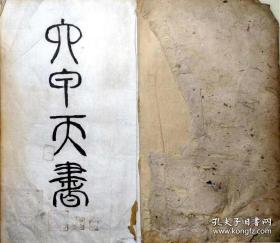 六甲天書
孔夫子旧书网